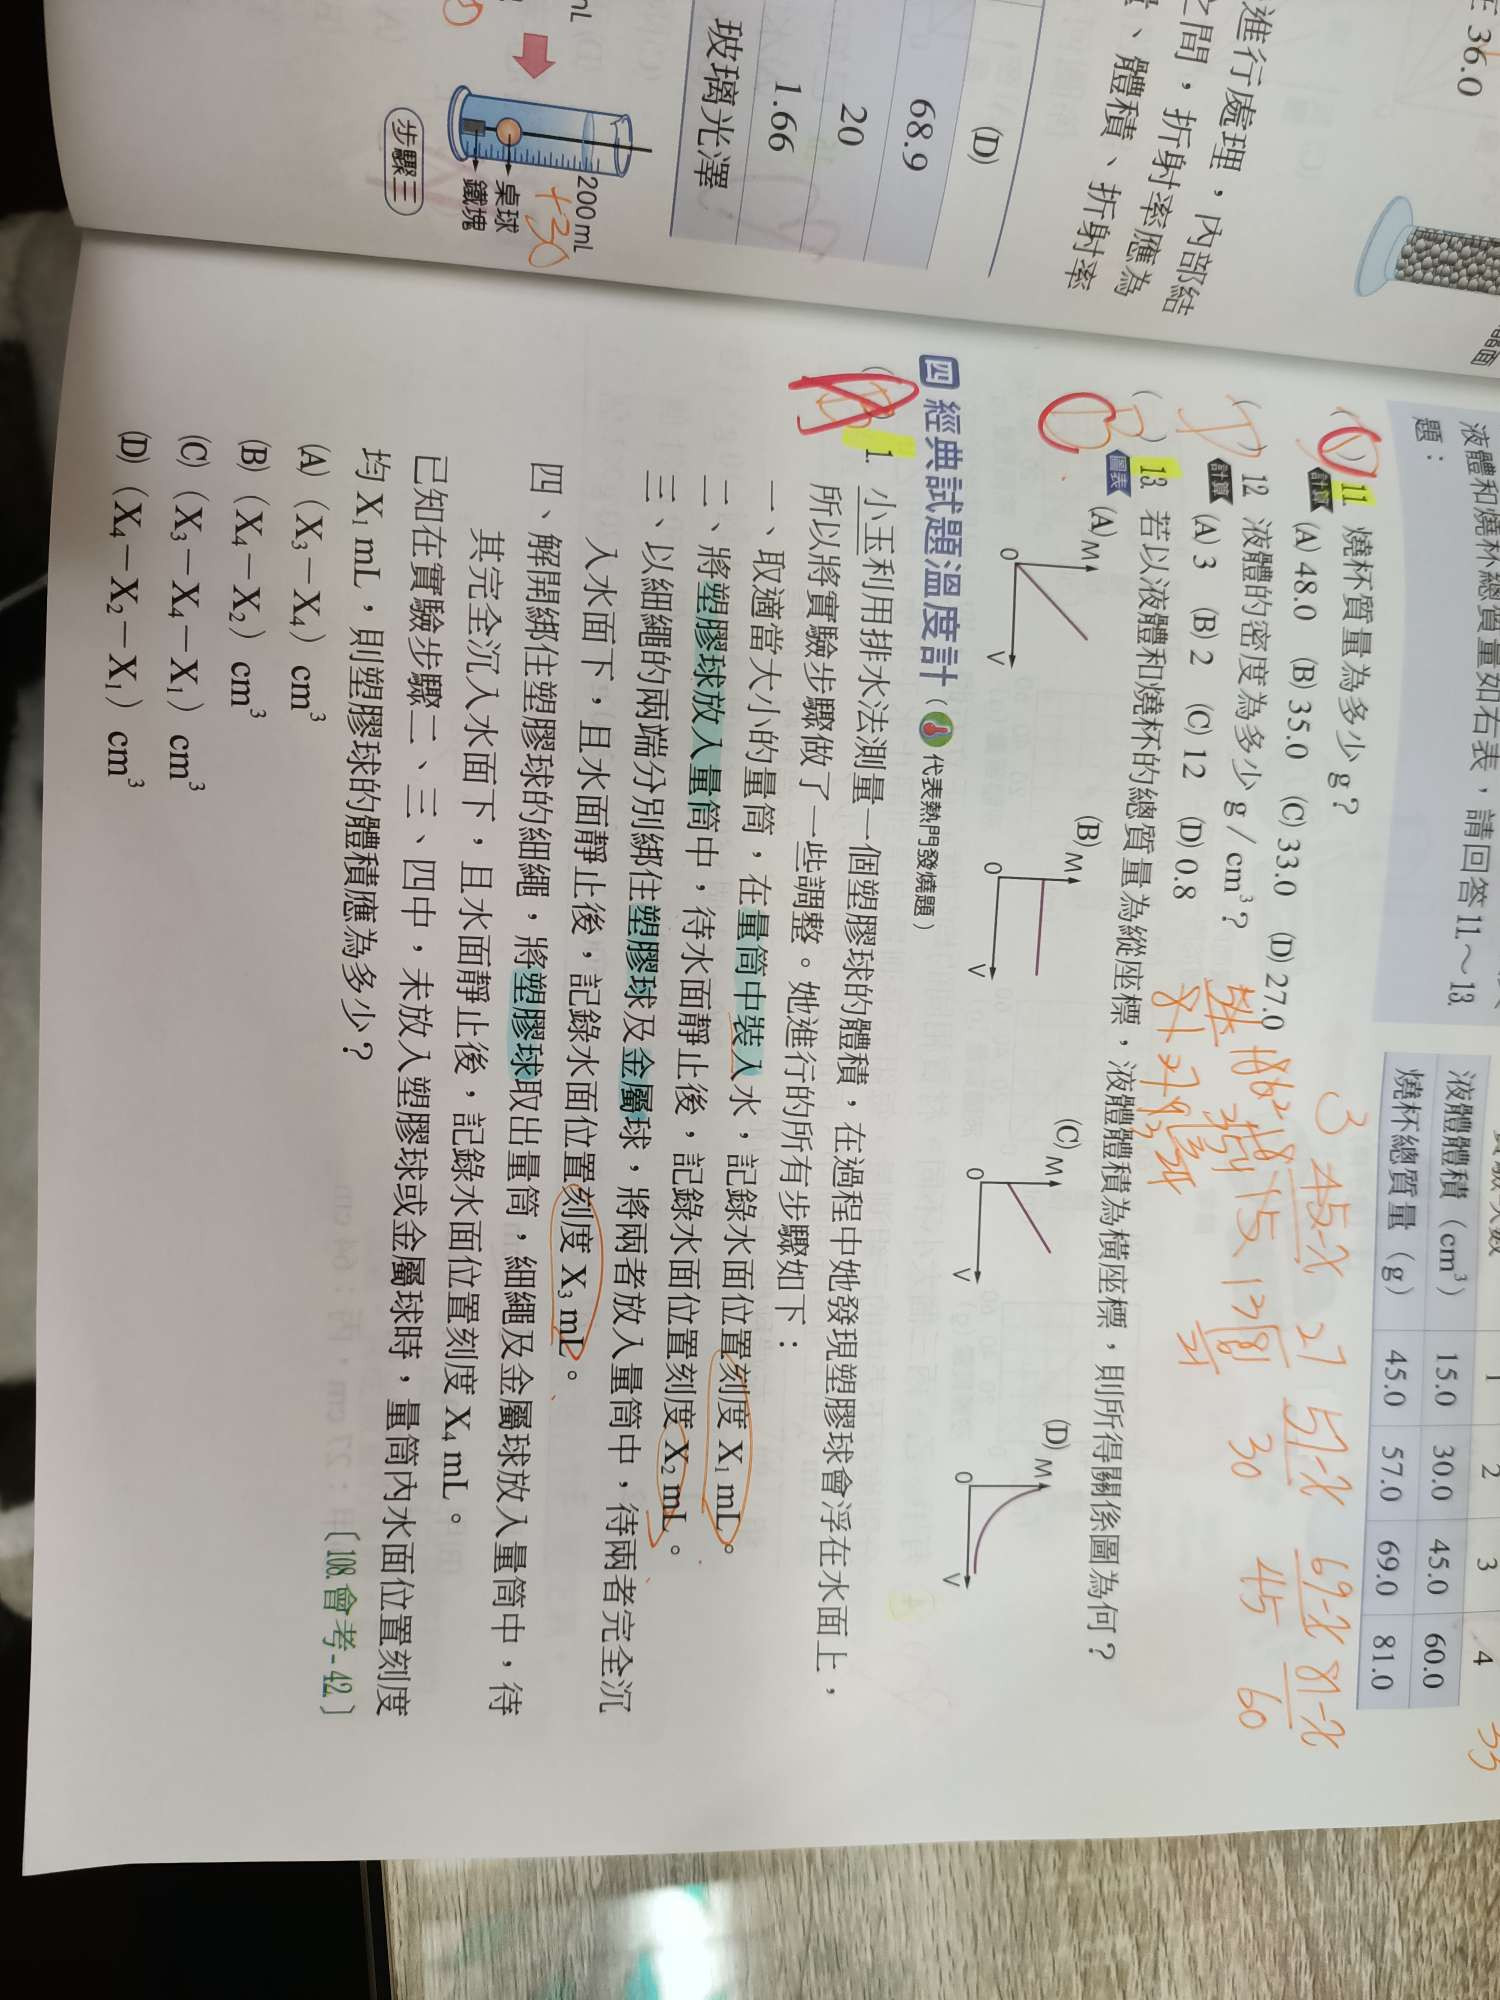 在 36.0
進行處理，內部結
之間，折射率應為
、體積、折射率
(D)
68.9
20
1.66
玻璃光澤
200 mL
+30
桌球
鐵塊
步驟三
液體和燒杯總質量如右表，請回答 11.～13.
題：
1 2 3 4
液體體積（cm³） 15.0 30.0 45.0 60.0
燒杯總質量（g） 45.0 57.0 69.0 81.0
11. 燒杯質量為多少 g？
計算 (A) 48.0 (B) 35.0 (C) 33.0 (D) 27.0
12. 液體的密度為多少 g／cm³？
計算 (A) 3 (B) 2 (C) 12 (D) 0.8
13. 若以液體和燒杯的總質量為縱座標，液體體積為橫座標，則所得關係圖為何？
圖表 (A) M 0 V (B) M 0 V (C) M 0 V (D) M 0 V
45-x 57-x 69-x 81-x
30 45 60
四 經典試題溫度計（代表熱門發燒題）
1. 小玉利用排水法測量一個塑膠球的體積，在過程中她發現塑膠球會浮在水面上，
所以將實驗步驟做了一些調整。她進行的所有步驟如下：
一、取適當大小的量筒，在量筒中裝入水，記錄水面位置刻度 X₁ mL。
二、將塑膠球放入量筒中，待水面靜止後，記錄水面位置刻度 X₂ mL。
三、以細繩的兩端分別綁住塑膠球及金屬球，將兩者放入量筒中，待兩者完全沉
入水面下，且水面靜止後，記錄水面位置刻度 X₃ mL。
四、解開綁住塑膠球的細繩，將塑膠球取出量筒，細繩及金屬球放入量筒中，待
其完全沉入水面下，且水面靜止後，記錄水面位置刻度 X₄ mL。
已知在實驗步驟二、三、四中，未放入塑膠球或金屬球時，量筒內水面位置刻度
均 X₁ mL，則塑膠球的體積應為多少？
〔108.會考-42.〕
(A)（X₃－X₄）cm³
(B)（X₄－X₂）cm³
(C)（X₃－X₄－X₁）cm³
(D)（X₄－X₂－X₁）cm³